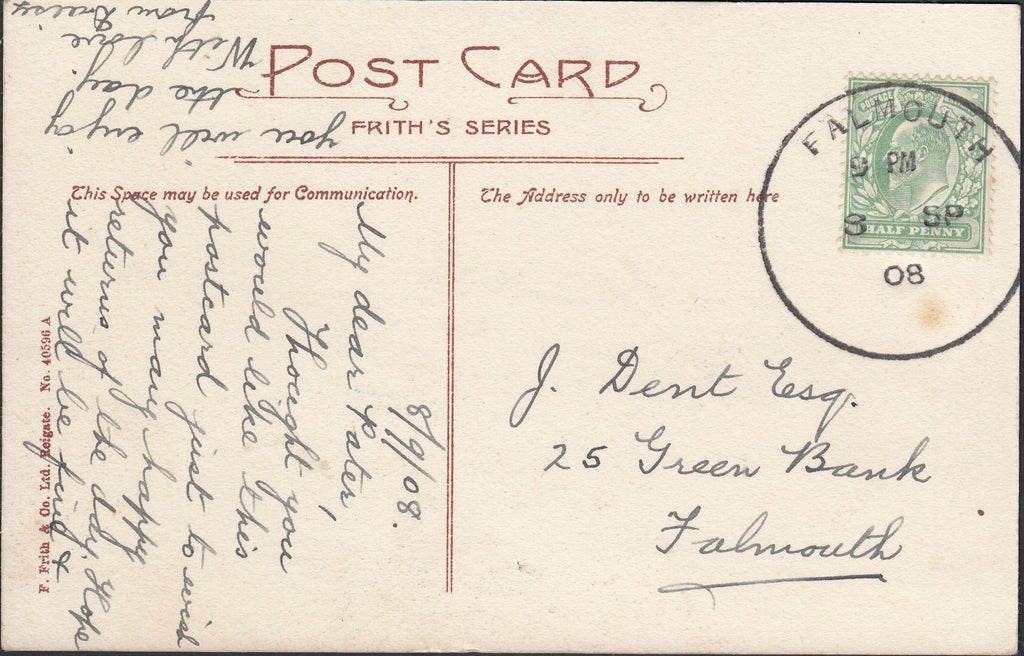 POST CARD
FRITH'S SERIES
This Space may be used for Communication.
The Address only to be written here
F. Frith & Co. Ltd. Reigate. No. 40596 A
8/9/08.
My dear Pater,
Thought you
would like this
postcard just to wish
you many happy
returns of the day. Hope
it will be fine &
you will enjoy
the day.
With love
from Daisy
FALMOUTH
9 PM
8 SP
08
POSTAGE
HALF PENNY
J. Dent Esq.
25 Green Bank
Falmouth